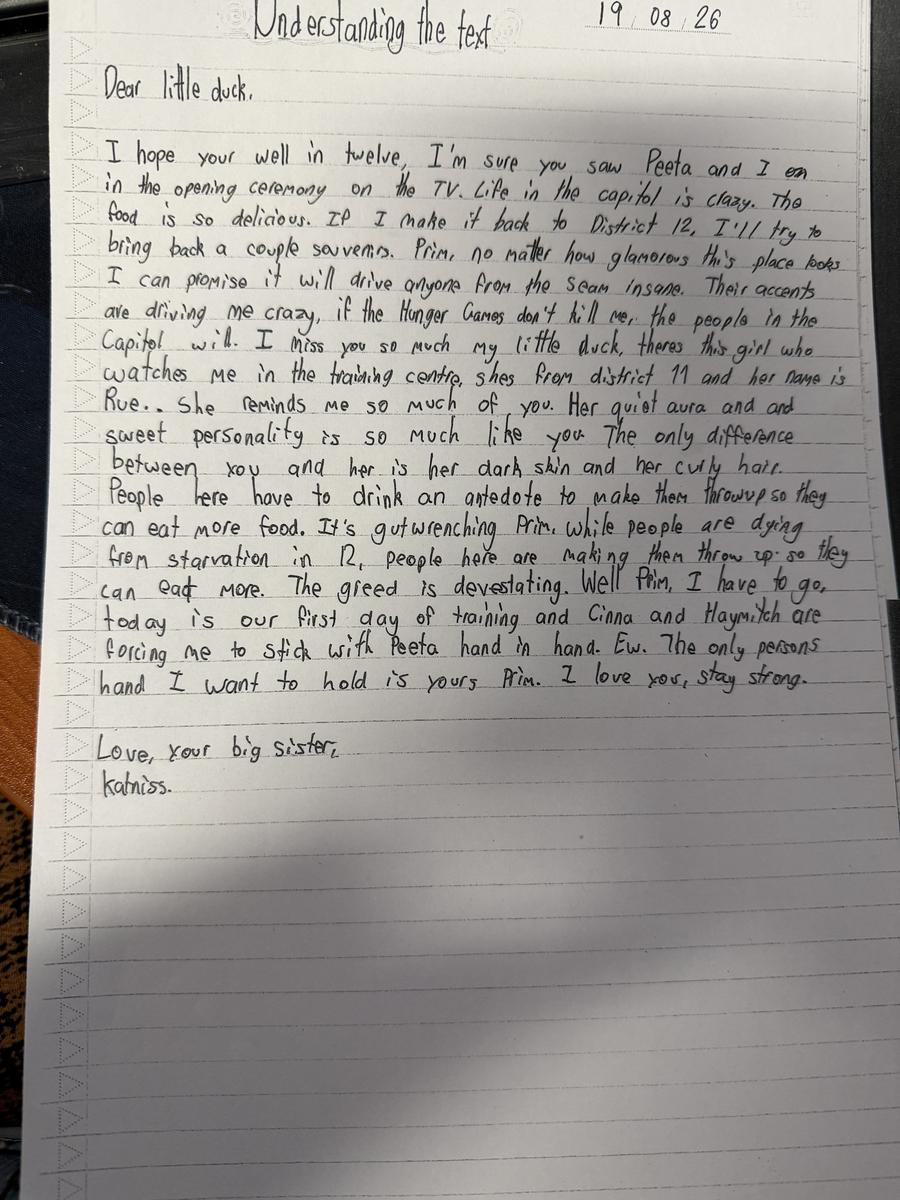 Understanding the text
19 08 26
Dear little duck,
I hope your well in twelve, I'm sure you saw Peeta and I on
in the opening ceremony on the TV. Life in the capitol is crazy. The
food is so delicious. If I make it back to District 12, I'll try to
bring back a couple souvenirs. Prim, no matter how glamorous this place looks
I can promise it will drive anyone from the seam insane. Their accents
are driving me crazy, if the Hunger Games don't kill me, the people in the
Capitol will. I miss you so much my little duck, theres this girl who
watches me in the training centre, shes from district 11 and her name is
Rue.. She reminds me so much of you. Her quiet aura and and
sweet personality is so much like you. The only difference
between you and her is her dark skin and her curly hair.
People here have to drink an antedote to make them throwup so they
can eat more food. It's gutwrenching Prim. while people are dying
from starvation in 12, people here are making them throw up so they
can eat more. The greed is devestating. Well Prim, I have to go,
today is our first day of training and Cinna and Haymitch are
forcing me to stick with Peeta hand in hand. Ew. The only persons
hand I want to hold is yours Prim. I love you, stay strong.
Love, your big sister,
katniss.